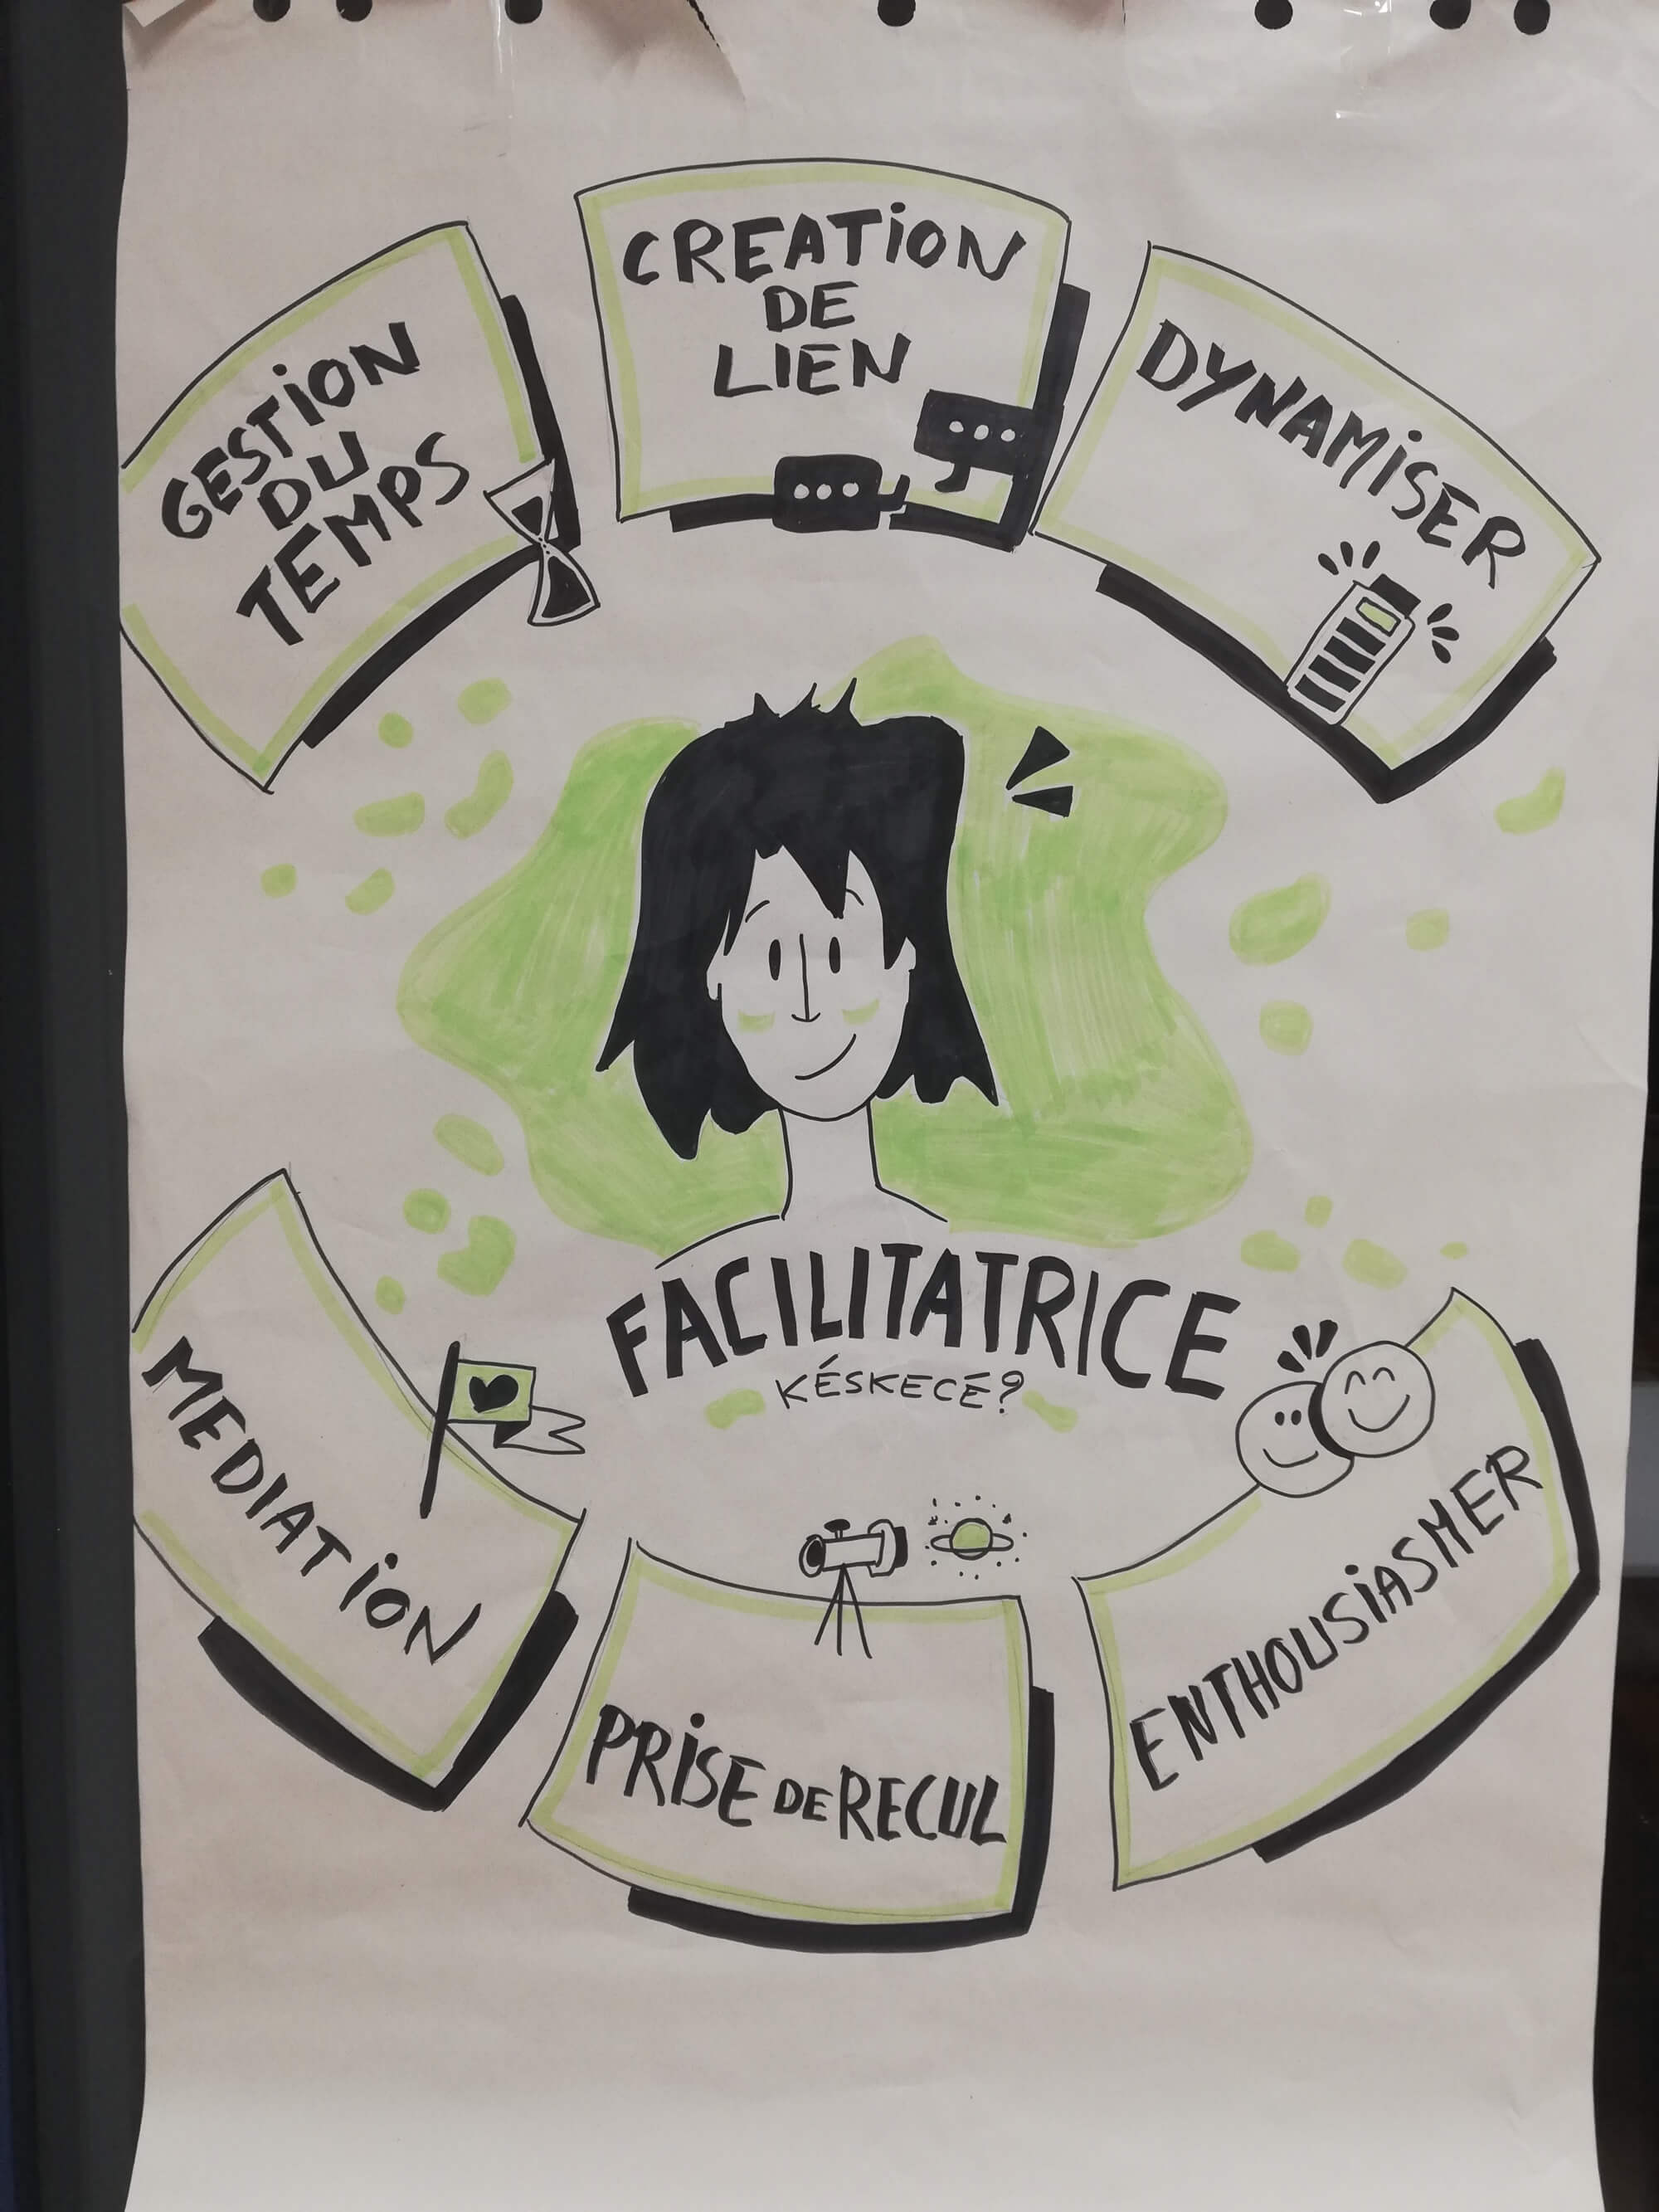 GESTION
DU
TEMPS
CREATION
DE
LIEN
DYNAMISER
FACILITATRICE
KÉSKECÉ?
MEDIATION
PRISE DE RECUL
ENTHOUSIASMER